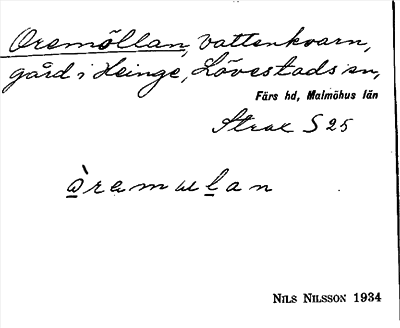 Oremöllan, vattenkvarn,
gård i Heinge, Lövestads sn,
Färs hd, Malmöhus län
Strax S 25
NILS NILSSON 1934